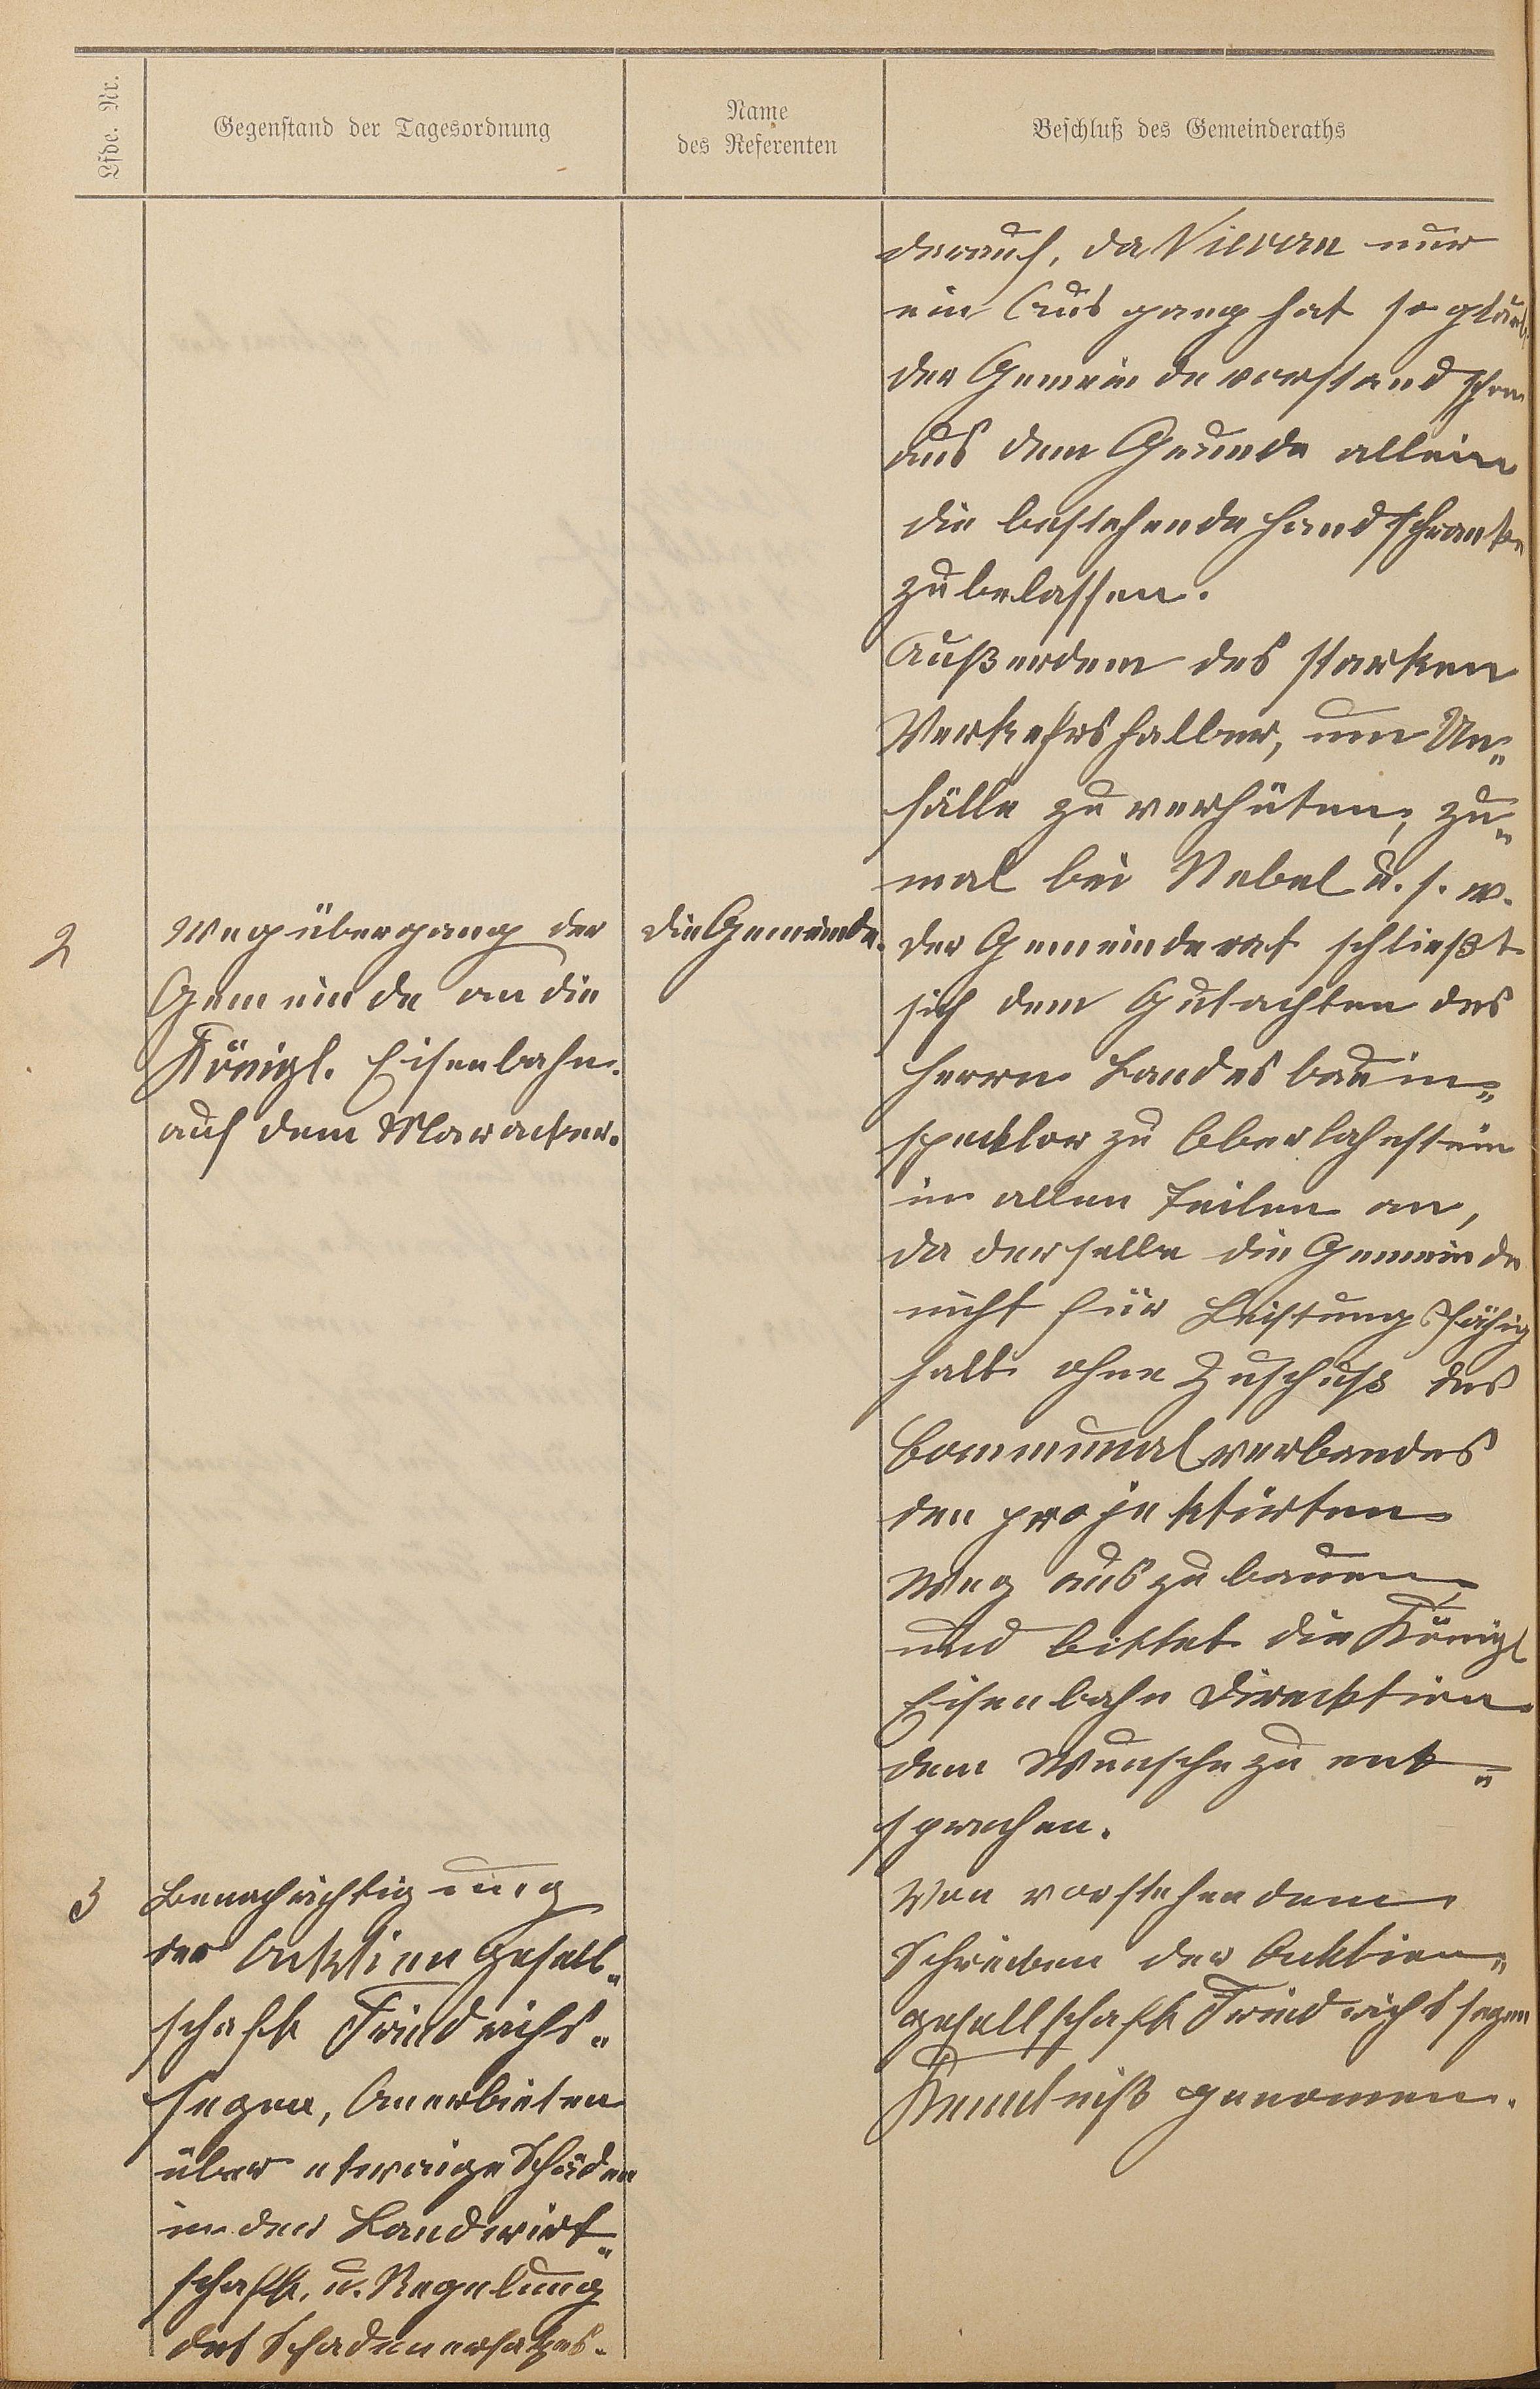 Lfde. Nr.
Gegenstand der Tagesordnung
Name
des Referenten
Beschluß des Gemeinderaths
darauf, da Nievern nur
ein Ausgang hat so glaubt
der Gemeindevorstand schon
aus dem Grunde allein
die bestehende Handschranke
zu belassen.
Außerdem des starken
Verkehrs halber, um Un„
fälle zu verhüten, zu„
mal bei Nebel u. s. w.
2
Wegübergang der
Gemeinde an die
Königl. Eisenbahn.
auf dem Maracker.
die Gemeinde.
der Gemeinderat schließt
sich dem Gutachten des
Herrn Landesbauin„
specktor zu Oberlahnstein
in allen Teilen an,
da derselbe die Gemeinde
nicht für Leistungsfähig
halt ohne Zuschuß des
Communalverbandes
den projektirten
Weg auszubauen,
und bittet die Königl
Eisenbahn Direcktion
dem Wunsche zu ent„
sprechen.
3
Benachrichtigung
der Acktiengesell„
schaft Friedrichs„
segen, Anerbieten
über etwaige Schäden
in der Landwirt„
schaft. u. Regelung
des Schadenersatzes.
Von vorstehendem
Schreiben der Acktien„
gesellschaft Friedrichssegen
Kenntniß genomen.